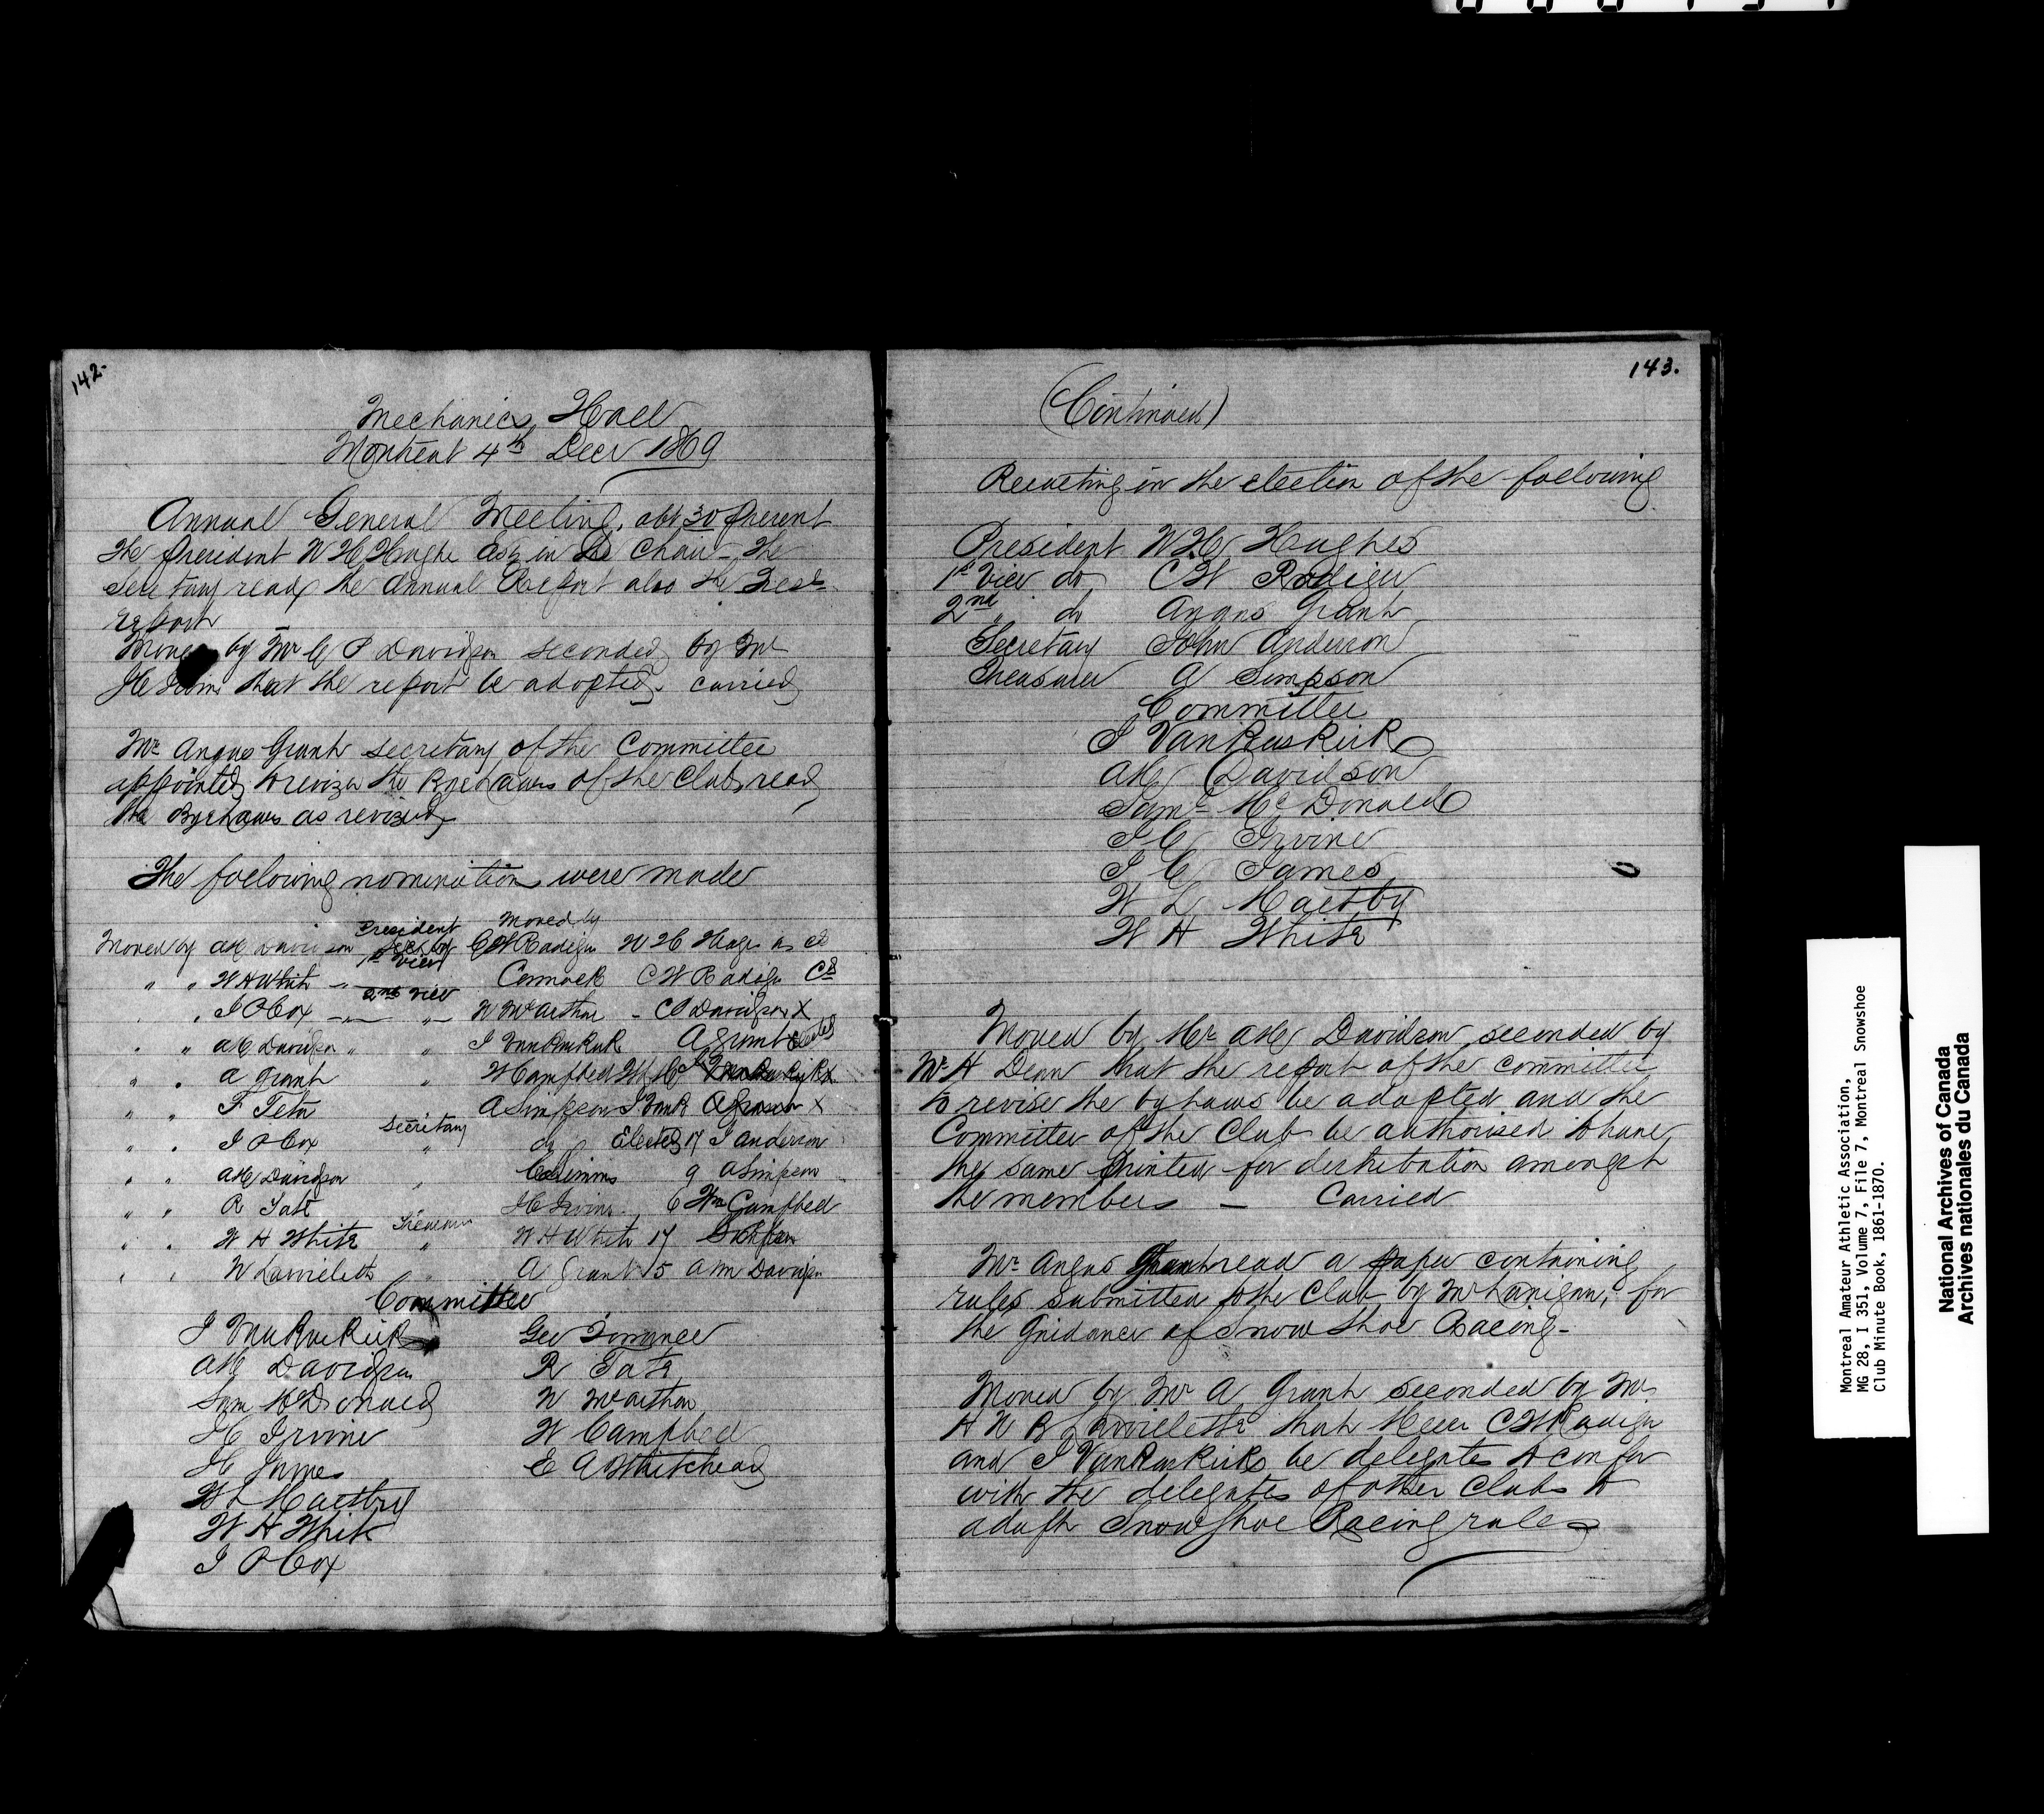 142.
Mechanics Hall
Montreal 4th Decr 1869
Annual General Meeting. abt 30 present
The president W H Hughe Esq in the Chair - The
secretary read the Annual Report also the Tres
report
Moved by Mr C P Davidson seconded by Mr
H Irvine that the report be adopted. carried
Mr Angus Grant secretary of the Committee
appointed to revize the Bye Laws of the Club, read
the Bye Laws as revized
The following nominations were made
President Moved by
Moved by A H Davidson Sec by C W Radiger W H Hughes
1st Vice
" " W H White Cormack C W Radiger Cd
2nd Vice
" I P Cox " W McArthur - C P Davidson X
" " A H Davidson " " I VanBuskirk A Grant Elected
" " A Grant " W Campbell
" " F Tetu A Simpson
Secretary
" " I P Cox " do Elected 17 J Anderson
" " A H Davidson " 9 A Simpson
" " R Tate H Irvine 6 Wm Campbell
Treasurer
" " W H White " W H White 17
" " W A Grant 5 A M Davidson
Committee
I VanBuskirk Geo Torrance
A H Davidson R Tate
Sam McDonald W McArthur
H Irvine W Campbell
H James E A Whitehead
W L Maltby
W H White
I P Cox
143.
(Continued)
Resulting in the election of the following
President W H Hughes
1st Vice do C W Radiger
2nd " do Angus Grant
Secretary John Anderson
Treasurer A Simpson
Committee
I VanBuskirk
A H Davidson
Saml McDonald
I C Irvine
I C James
W L Maltby
W H White
Moved by Mr A H Davidson seconded by
Mr H Dean that the report of the committee
to revise the by Laws be adopted and the
Committee of the Club be authorised to have
the same printed for distribution amongst
the members — Carried
Mr Angus Grant read a paper containing
rules submitted to the Club by Mr Lanigan, for
the Guidance of Snow Shoe Racing -
Moved by Mr A Grant seconded by Mr
that Messr C W Radiger
and I VanBuskirk be delegates to confer
with the delegates of other Clubs to
adopt Snow Shoe Racing rules
Montreal Amateur Athletic Association,
MG 28, I 351, Volume 7, File 7, Montreal Snowshoe
Club Minute Book, 1861-1870.
National Archives of Canada
Archives nationales du Canada